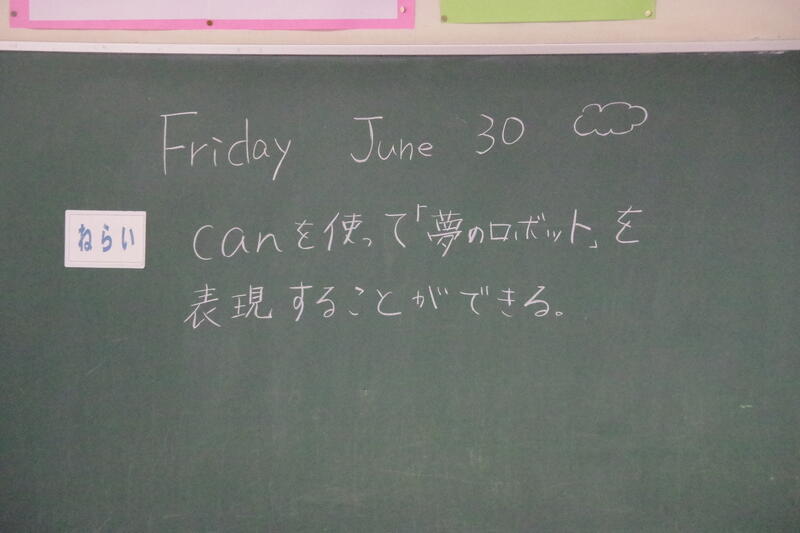 Friday June 30
ねらい
canを使って「夢のロボット」を
表現することができる。